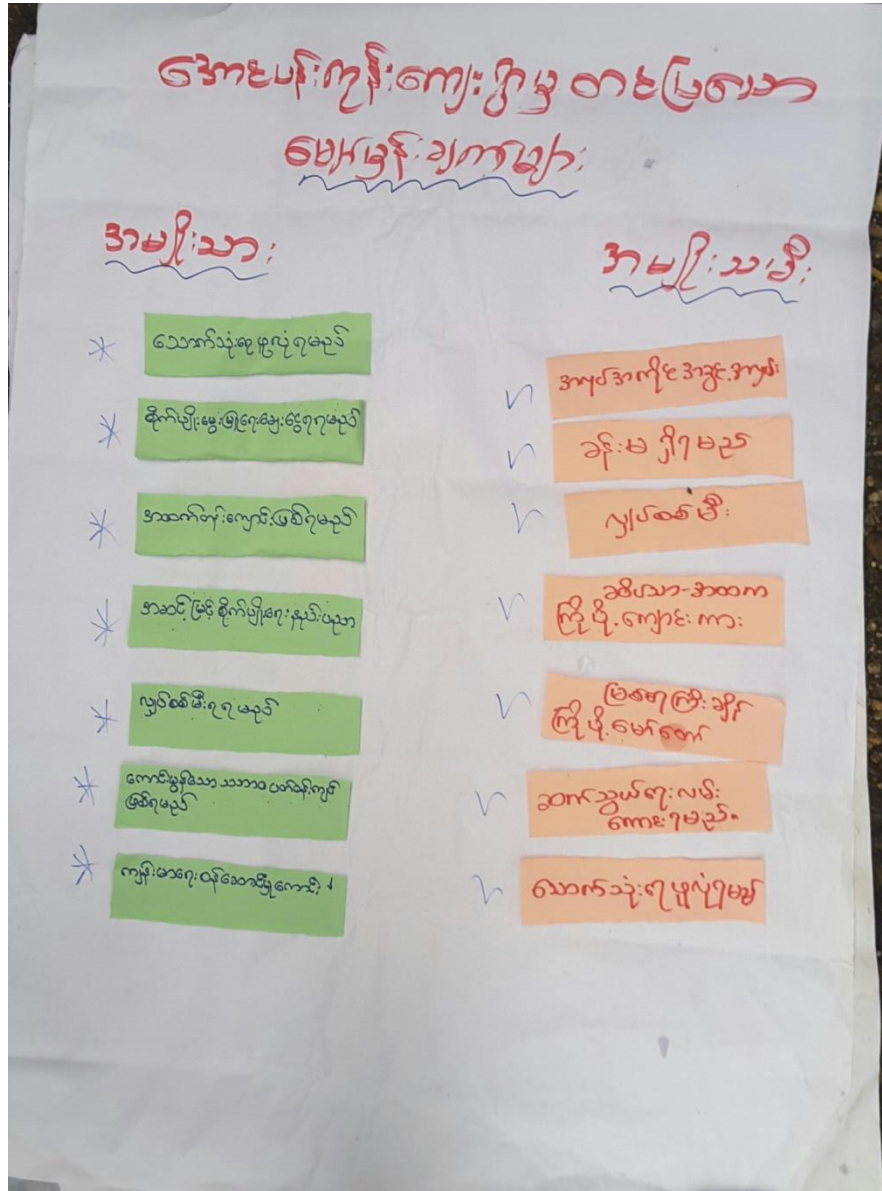 အောင်ပန်းကုန်းကျေးရွာမှ တင်ပြသော
မျှော်မှန်းချက်များ
အမျိုးသား
သောက်သုံးရေဖူလုံရမည်
စိုက်ပျိုးမွေးမြူရေးချေးငွေရရမည်
အထက်တန်းကျောင်းဖြစ်ရမည်
အဆင့်မြင့်စိုက်ပျိုးရေးနည်းပညာ
လျှပ်စစ်မီးရရမည်
ကောင်းမွန်သော သဘာဝပတ်ဝန်းကျင်
ဖြစ်ရမည်
ကျန်းမာရေးဝန်ဆောင်မှုကောင်း
အမျိုးသမီး
အလုပ်အကိုင်အခွင့်အလမ်း
ခန်းမ ရှိရမည်
လျှပ်စစ်မီး
အထက
ကြိုပို့ကျောင်းကား
မြစ်ရေကြီးချိန်
ကြိုပို့မော်တော်
ဆက်သွယ်ရေးလမ်း
ကောင်းရမည်။
သောက်သုံးရေဖူလုံရမည်